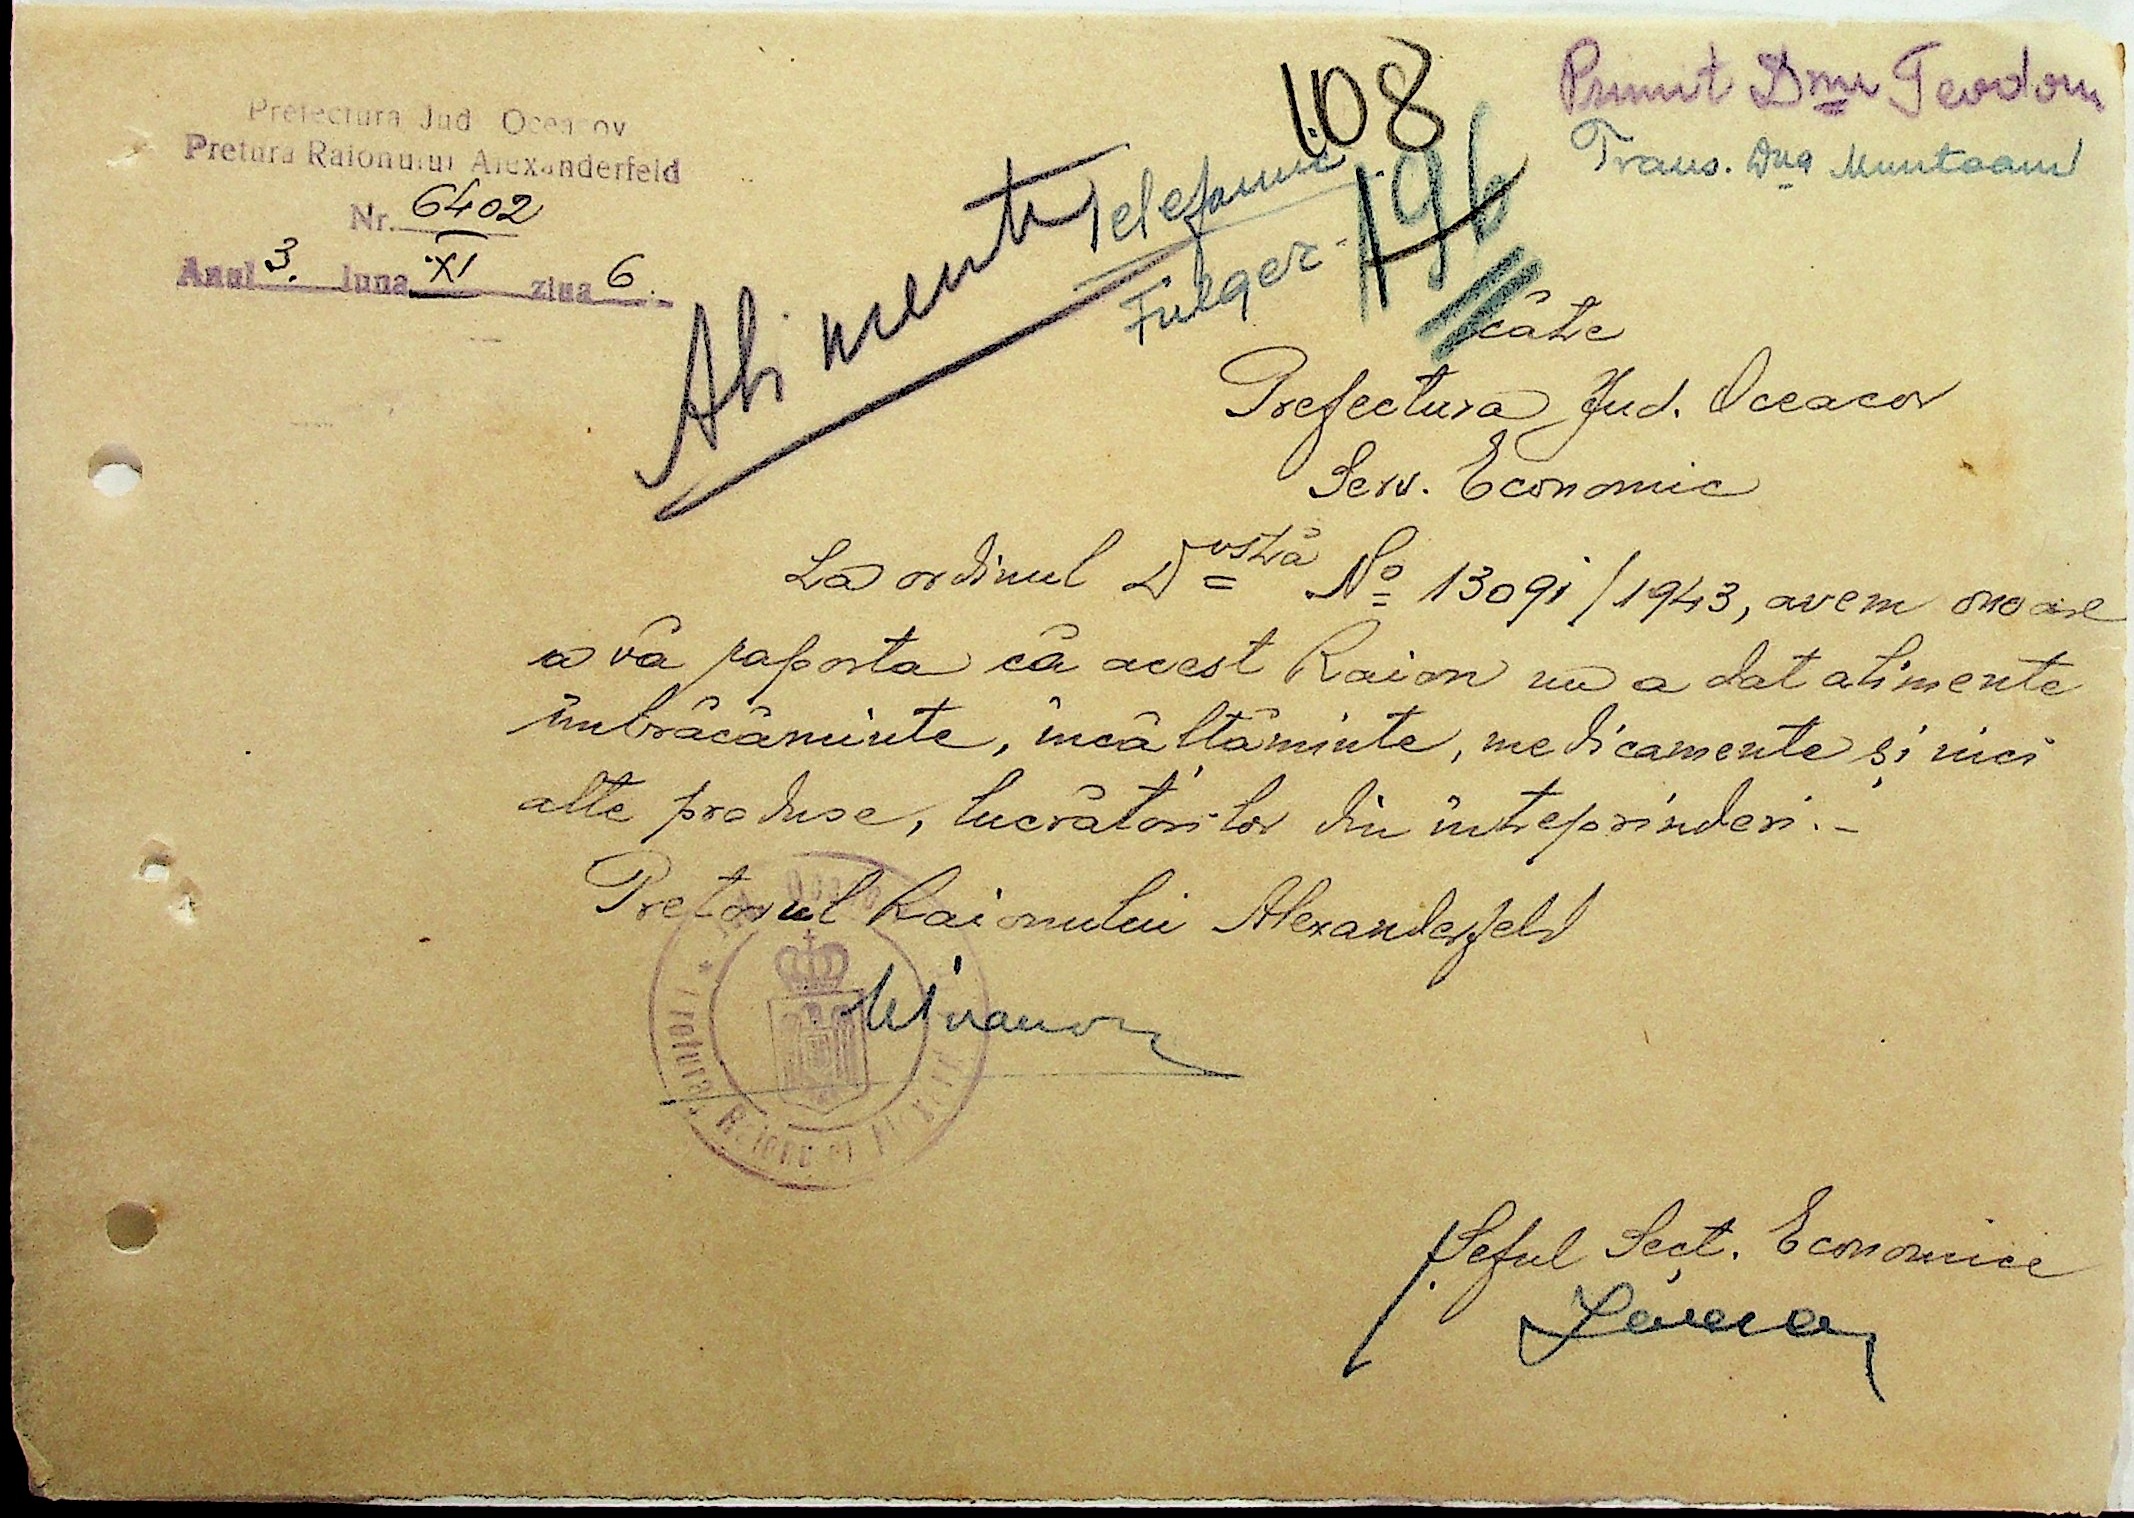 Prefectura Jud Oceacov
Pretura Raionului Alexanderfeld
Nr. 6402
Anul 3. luna XI ziua 6.
108
196
Primit Dnu Teodoru
Trans. Dna Munteanu
Alimente
Telefonic
Fulger
câtre
Prefectura Jud. Oceacov
Serv. Economic
La ordinul Dvstrâ No 13091/1943, avem onoare
a vâ raporta câ acest Raion nu a dat alimente
îmbrâcâminte, incâltâminte, medicamente și nici
alte produse, lucrâtorilor din intreprinderi.-
Pretorul Raionului Alexanderfeld
Pretura Raionului
Șeful Secț. Economice